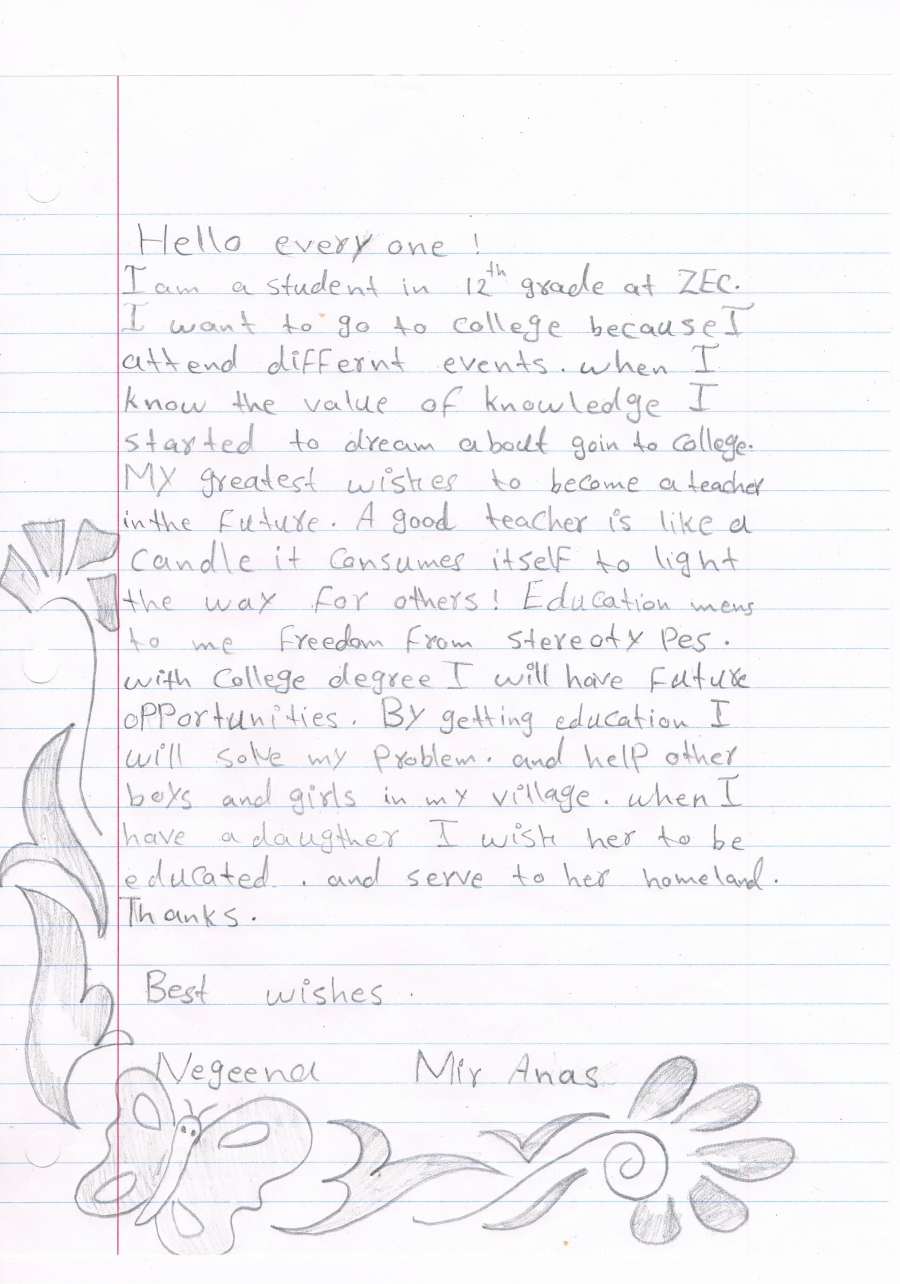 Hello every one !
I am a student in 12th grade at ZEC.
I want to go to college because I
attend differnt events. when I
know the value of knowledge I
started to dream about goin to college.
My greatest wishes to become a teacher
inthe future. A good teacher is like a
candle it consumes itself to light
the way for others! Education mens
to me freedom from stereoty pes.
with college degree I will have future
opportunities. By getting education I
will solve my problem. and help other
boys and girls in my village. when I
have a daugther I wish her to be
educated. and serve to her homeland.
Thanks.
Best wishes.
Negeena Mir Anas